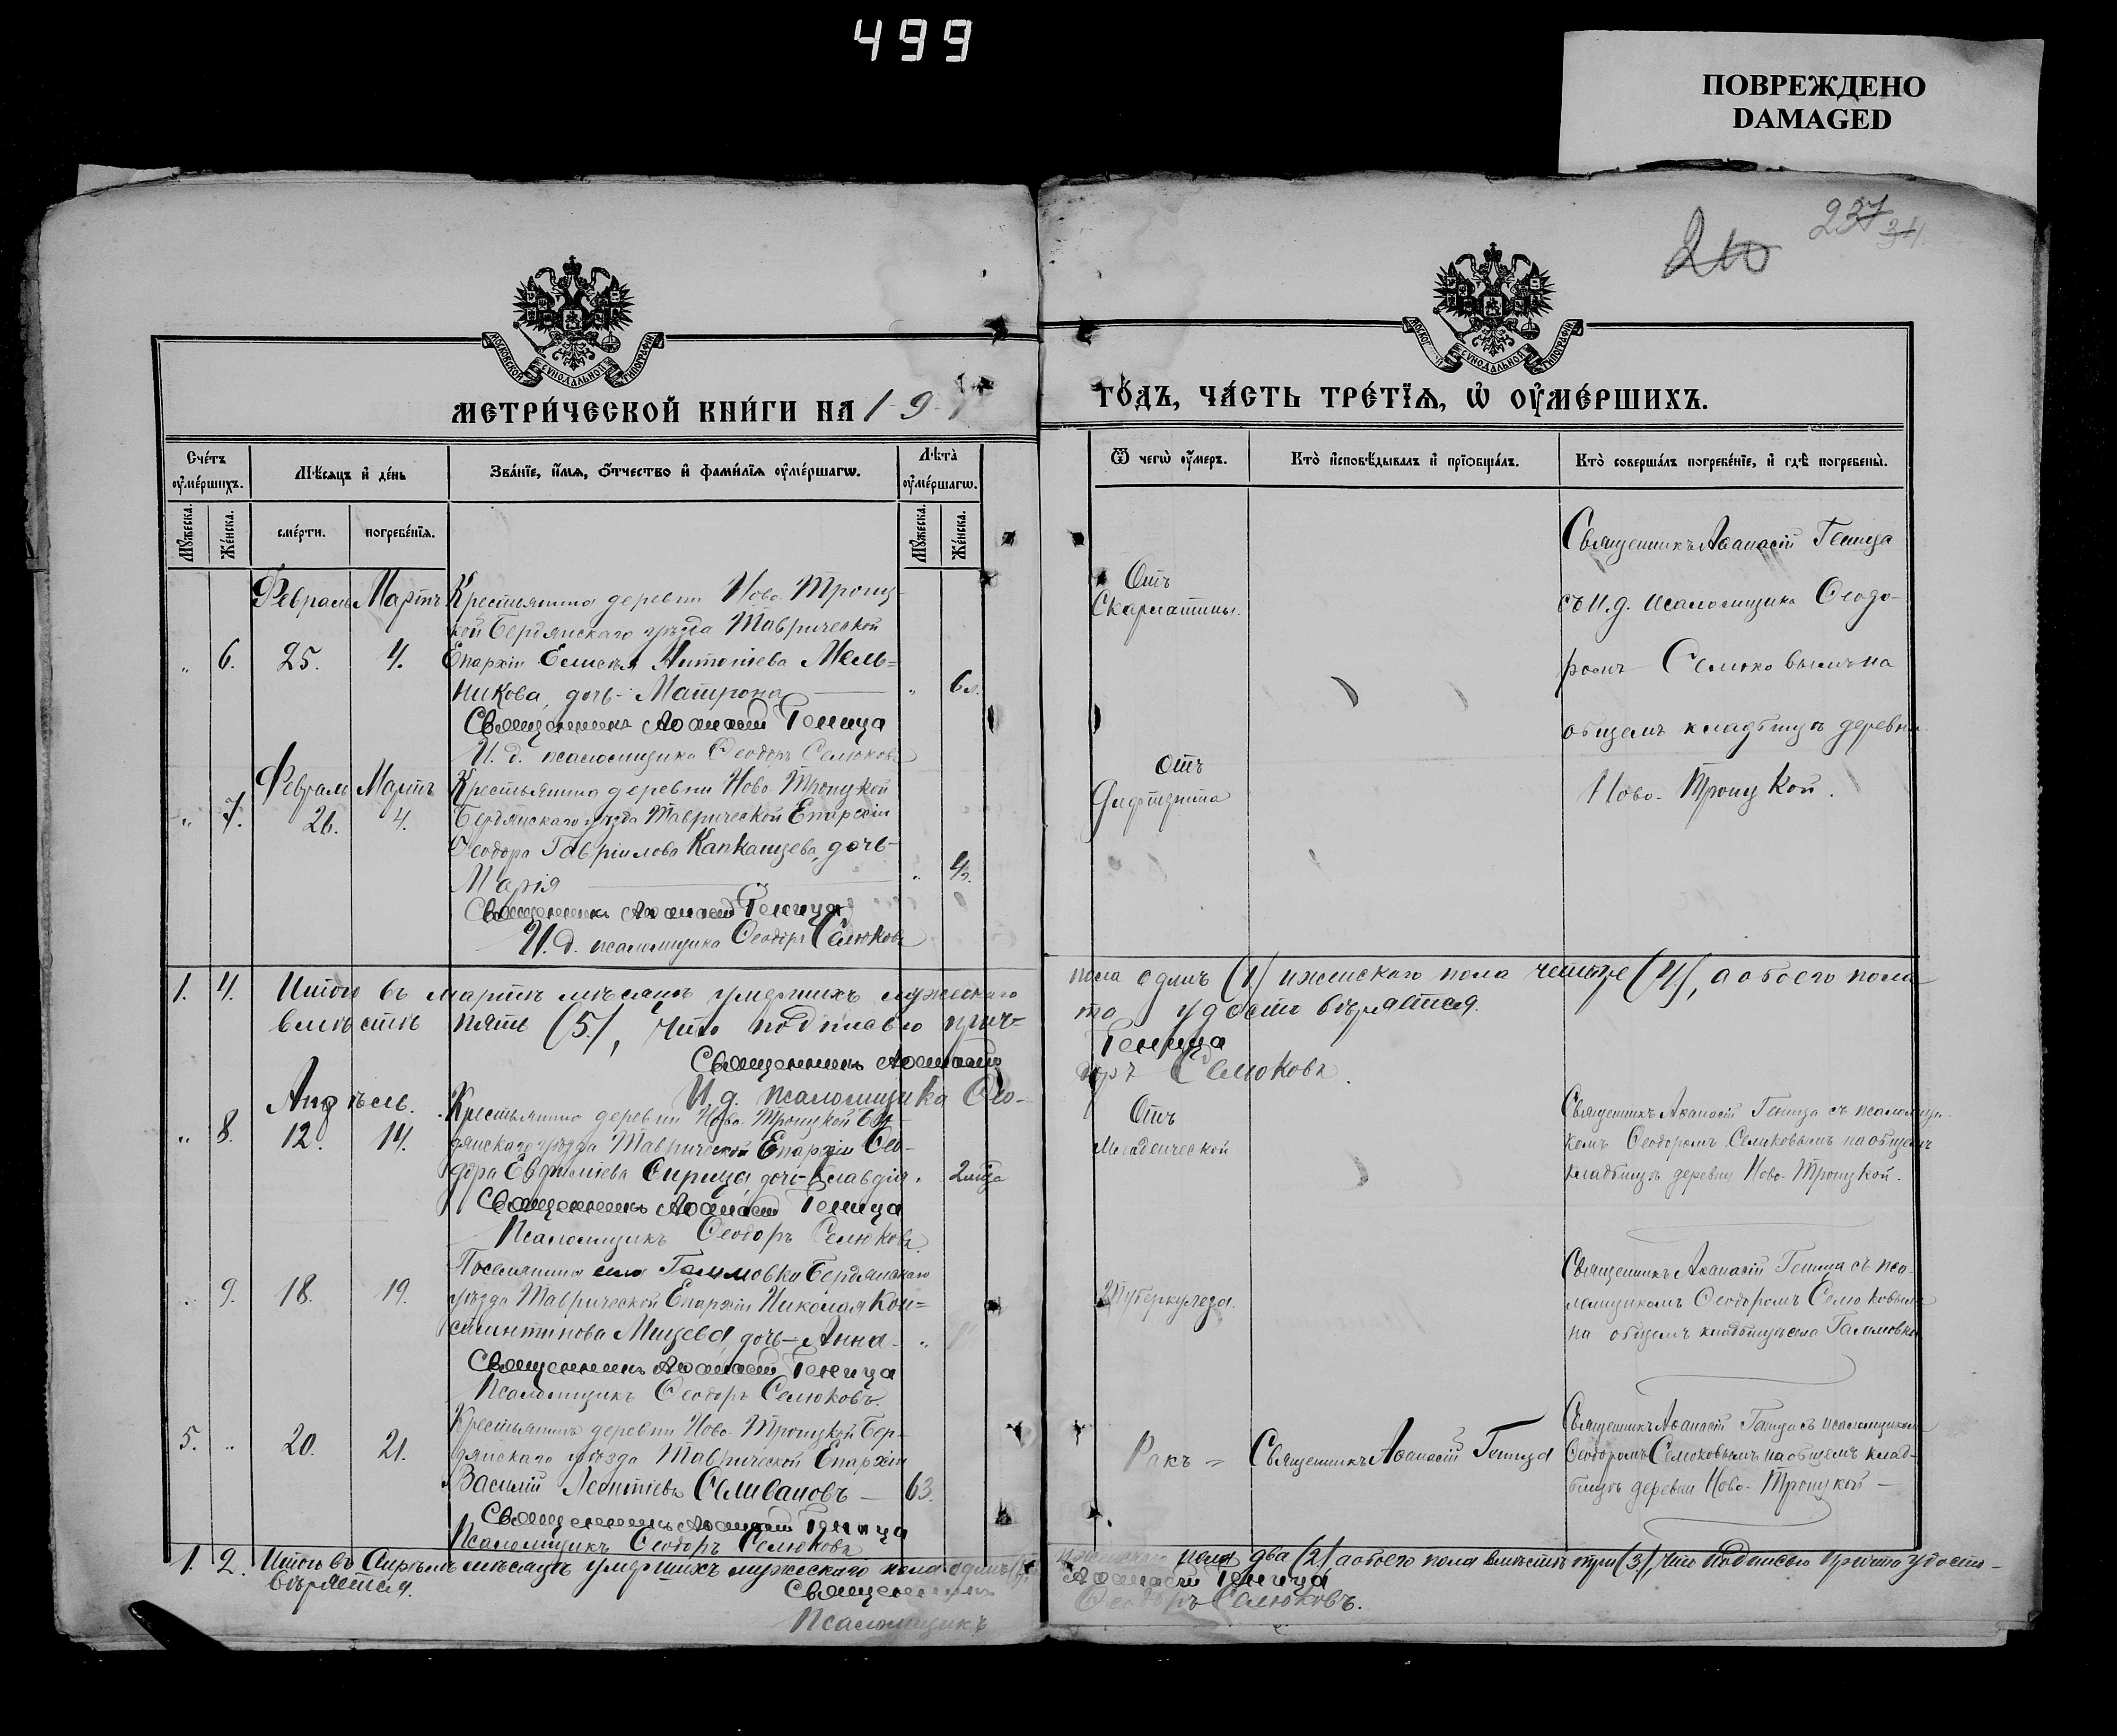 499
ПОВРЕЖДЕНО
DAMAGED
210
237
34.
МОСКОВСКОЙ СѴНОДАЛЬНОЙ ТИПОГРАФІИ
МЕТРИ́ЧЕСКОЙ КНИ́ГИ НА 19
ГО́ДЪ, ЧА́СТЬ ТРЕ́ТЇѦ, Ѡ҆ ОУ҆МЕ́РШИХЪ.
Сче́тъ оу҆ме́ршихъ.
Мѣ́сѧцъ и҆ де́нь
Зва́нїе, и҆́мѧ, ѻ҆́тчество и҆ фами́лїѧ оу҆ме́ршагѡ.
Лѣ́та оу҆ме́ршагѡ.
Мꙋ́жеска.
Же́нска.
сме́рти.
погребе́нїѧ.
Мꙋ́жеска.
Же́нска.
Ѿ чегѡ̀ оу҆́меръ.
Кто̀ и҆сповѣ́дывалъ и҆ прїѡбща́лъ.
Кто̀ соверша́лъ погребе́нїе, и҆ гдѣ̀ погребены̀.
Февраль Мартъ Крестьянина деревни Ново-Троиц-
кой Бердянскаго уѣзда Таврической
„ 6. 25. 4. Епархіи Елисѣя Антоніева Мель-
никова, дочь-Матрона „ 6 л.
Священникъ Аѳанасій Геница
И. д. псаломщика Ѳеодоръ Селюковъ
Отъ
Скарлатины.
Священникъ Аѳанасій Геница
съ И.д. псаломщика Ѳеодо-
ромъ Селюковымъ на
общемъ кладбищѣ деревни
Ново-Троицкой.
Февраль Мартъ Крестьянина деревни Ново-Троицкой
„ 7. 26. 4. Бердянскаго уѣзда Таврической Епархіи
Ѳеодора Гавріилова Капканцева, дочь-
Марія „
Священникъ Аѳанасій Геница
И.д. псаломщика Ѳеодоръ Селюковъ
Отъ
Дифтерита
1. 4. Итого въ мартѣ мѣсяцѣ умершихъ мужескаго пола одинъ (1) и женскаго пола четыре (4), а обоего пола
вмѣстѣ пять (5), что подписью прич-та удостовѣряется.
Священникъ Аѳанасій Геница
И.д. псаломщика Ѳео-доръ Селюковъ.
Апрѣль. Крестьянина деревни Ново-Троицкой Бер-
„ 8. 12. 14. дянскаго уѣзда Таврической Епархіи Ѳео-
дора Евфиміева Сирицы дочь-Клавдія „ 2 мѣс.
Священникъ Аѳанасій Геница
Псаломщикъ Ѳеодоръ Селюковъ.
Отъ
Младенческой
Священникъ Аѳанасій Геница съ псаломщи-
комъ Ѳеодоромъ Селюковымъ на общемъ
кладбищѣ деревни Ново-Троицкой.
Поселянина села Гаммовки Бердянскаго
„ 9. 18. 19. уѣзда Таврической Епархіи Николая Кон-
стантинова Мицева, дочь-Анна- „
Священникъ Аѳанасій Геница
Псаломщикъ Ѳеодоръ Селюковъ.
Туберкулеза.
Священникъ Аѳанасій Геница съ пса-
ломщикомъ Ѳеодоромъ Селюковымъ
на общемъ кладбищѣ села Гаммовки
Крестьянинъ деревни Ново-Троицкой Бер-
5. „ 20. 21. дянскаго уѣзда Таврической Епархіи
Василій Леонтіевъ Селивановъ — 63.
Священникъ Аѳанасій Геница
Псаломщикъ Ѳеодоръ Селюковъ
Ракъ
Священникъ Аѳанасій Геница
Священникъ Аѳанасій Геница съ псаломщикомъ
Ѳеодоромъ Селюковымъ на общемъ клад-
бищѣ деревни Ново-Троицкой —
1. 2. Итого въ Апрѣлѣ мѣсяцѣ умершихъ мужескаго пола одинъ (1) женскаго пола два (2) а обоего пола вмѣстѣ три (3), что подписью причта удосто-
вѣряется.
Священникъ Аѳанасій Геница
Псаломщикъ Ѳеодоръ Селюковъ.